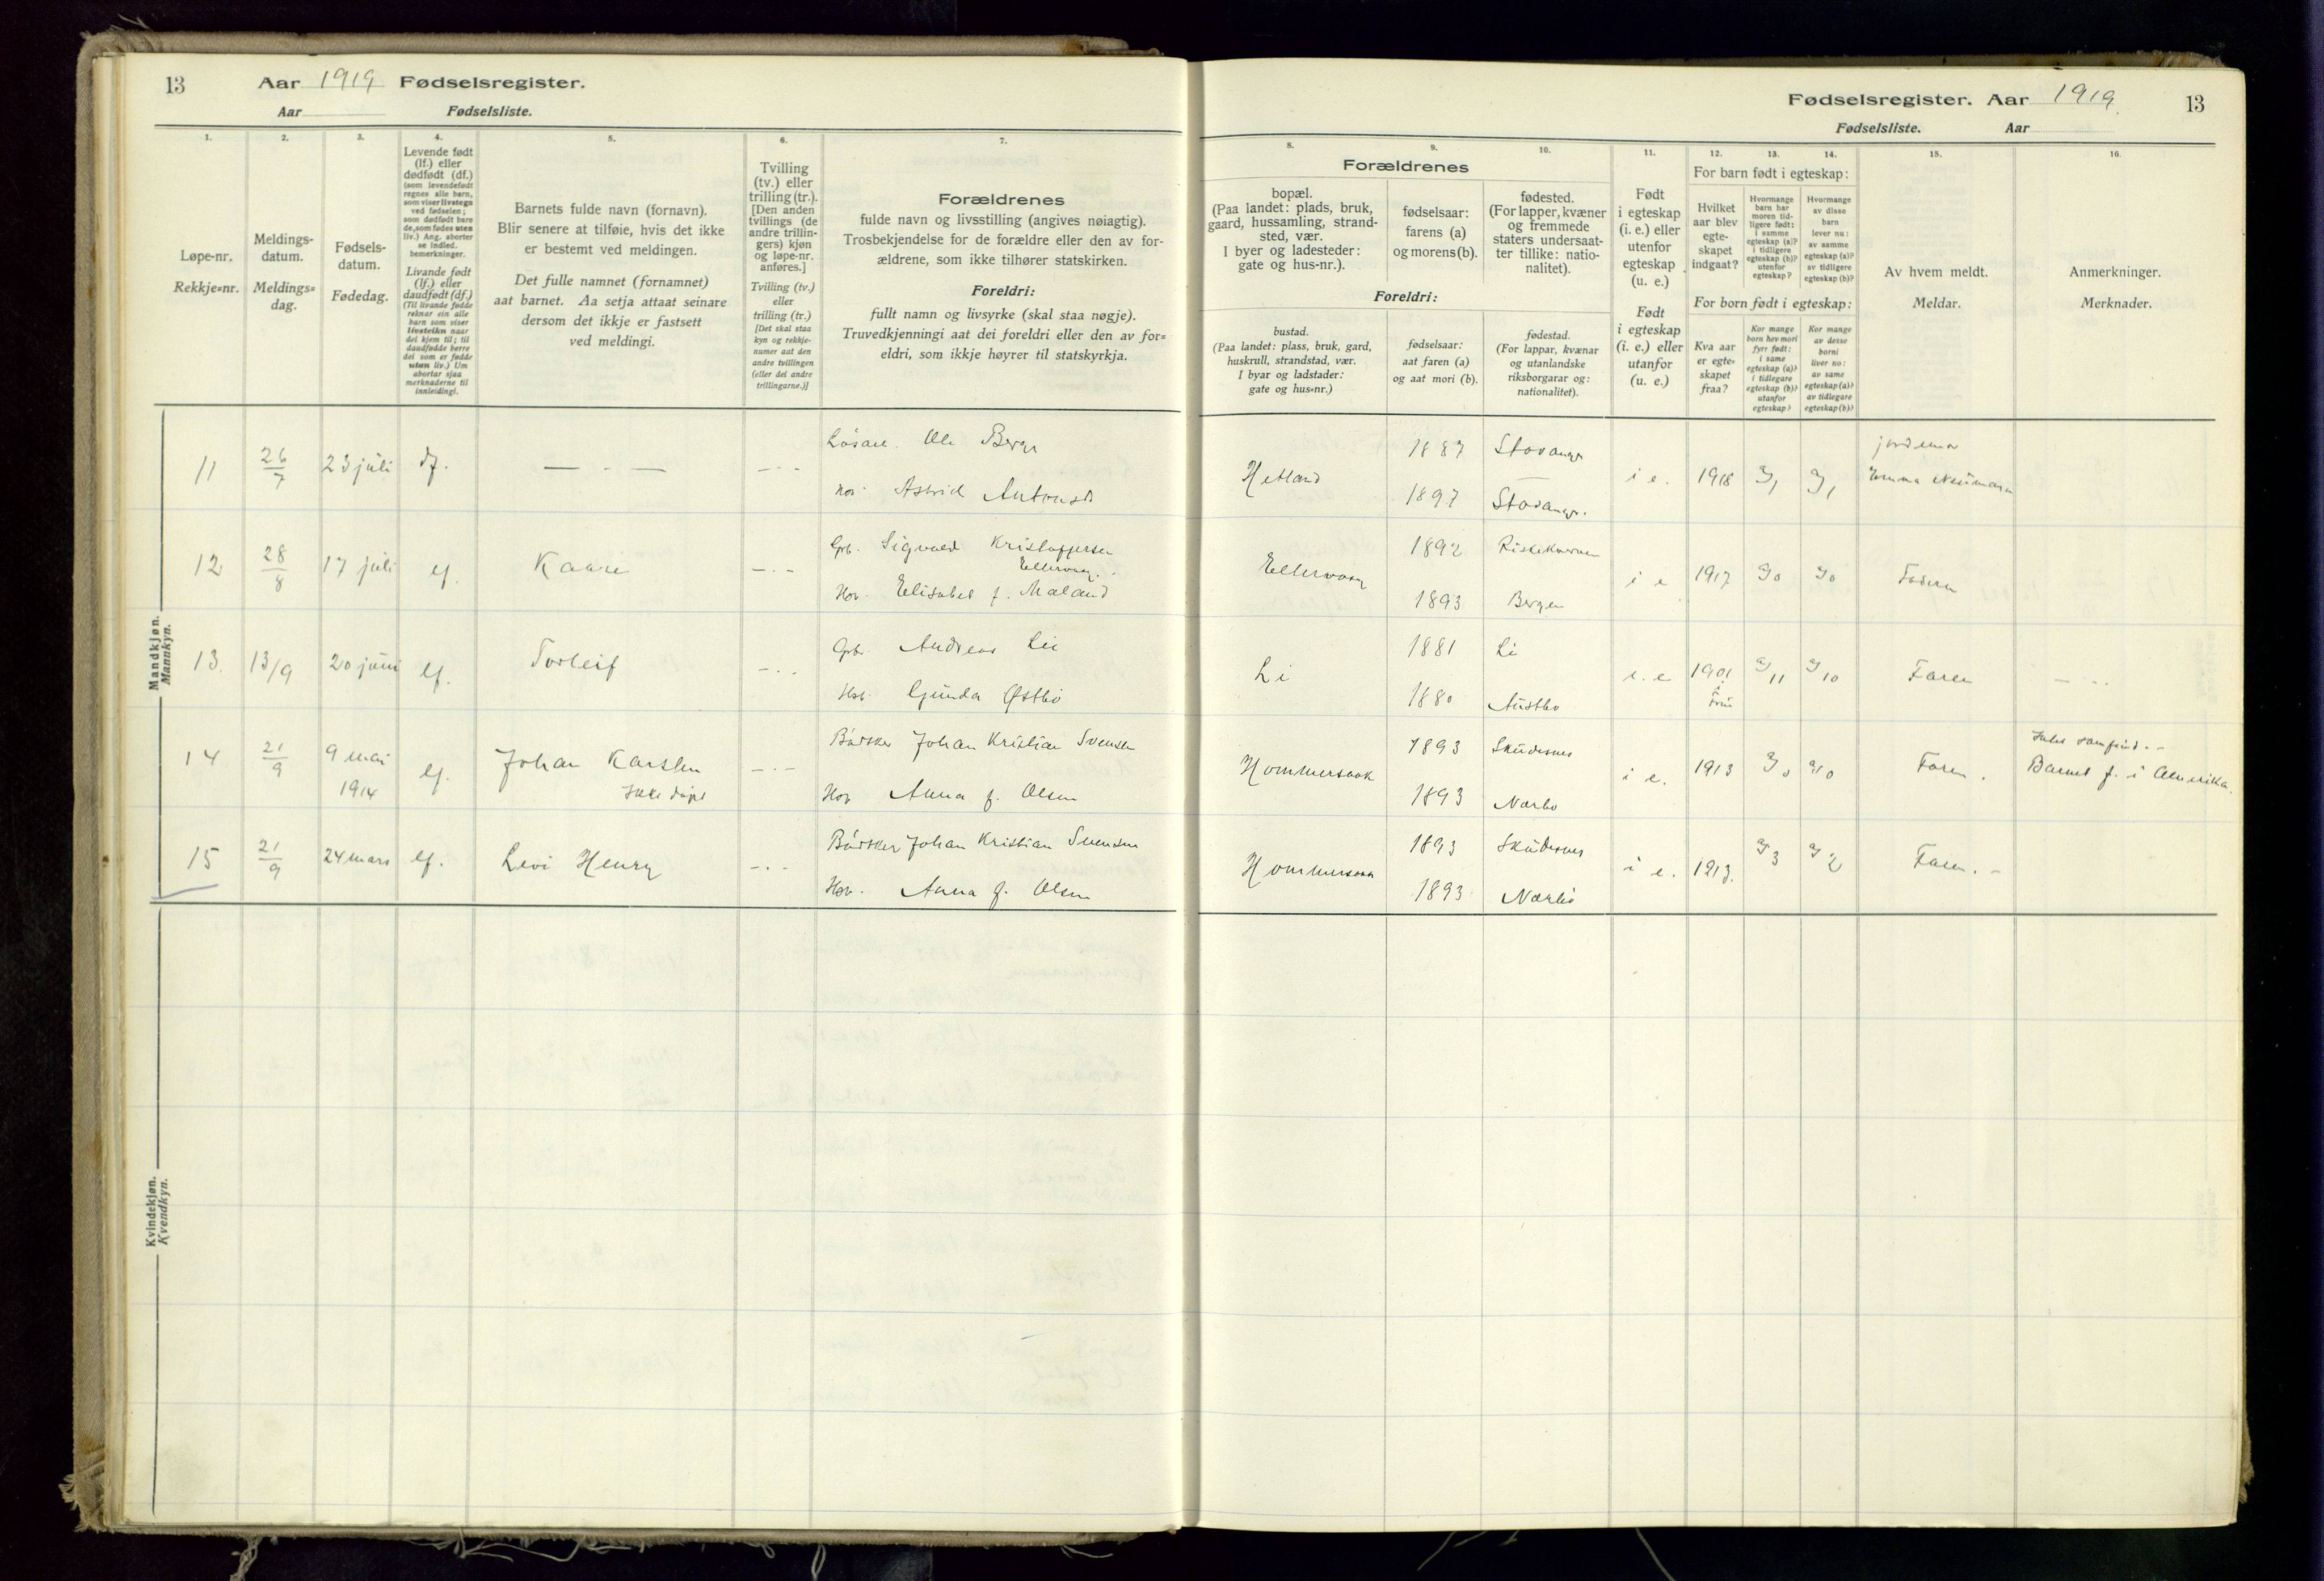 13 Aar 1919 Fødselsregister.
Aar Fødselsliste.
Fødselsregister. Aar 1919 13
Fødselsliste. Aar
1. 2. 3. 4. 5. 6. 7.
Løpe-nr.
Rekkje=nr.
Meldings-
datum.
Meldings=
dag.
Fødsels-
datum.
Fødedag.
Levende født
(lf.) eller
dødfødt (df.)
(som levendefødt
regnes alle barn,
som viser livstegn
ved fødselen;
som dødfødt bare
de, som fødes uten
liv.) Ang. aborter
se indled.
bemerkninger.
Livande født
(lf.) eller
daudfødt (df.)
(Til livande fødde
reknar ein alle
barn som viser
livsteikn naar
dei kjem til; til
daudfødde berre
dei som er fødde
utan liv.) Um
abortar sjaa
merknaderne til
innleidingi.
Barnets fulde navn (fornavn).
Blir senere at tilføie, hvis det ikke
er bestemt ved meldingen.
Det fulle namnet (fornamnet)
aat barnet. Aa setja attaat seinare
dersom det ikkje er fastsett
ved meldingi.
Tvilling
(tv.) eller
trilling (tr.).
[Den anden
tvillings (de
andre trillin-
gers) kjøn
og løpe-nr.
anføres.]
Tvilling (tv.)
eller
trilling (tr.)
[Det skal staa
kyn og rekkje-
numer aat den
andre tvillingen
(eller dei andre
trillingarne.)]
Forældrenes
fulde navn og livsstilling (angives nøiagtig).
Trosbekjendelse for de forældre eller den av for-
ældrene, som ikke tilhører statskirken.
Foreldri:
fullt namn og livsyrke (skal staa nøgje).
Truvedkjenningi aat dei foreldri eller den av for=
eldri, som ikkje høyrer til statskyrkja.
8. 9. 10. 11. 12. 13. 14. 15. 16.
Forældrenes
bopæl.
(Paa landet: plads, bruk,
gaard, hussamling, strand-
sted, vær.
I byer og ladesteder:
gate og hus-nr.).
fødselsaar:
farens (a)
og morens (b).
fødested.
(For lapper, kvæner
og fremmede
staters undersaat-
ter tillike: natio-
nalitet).
Foreldri:
bustad.
(Paa landet: plass, bruk, gard,
huskrull, strandstad, vær.
I byar og ladstader:
gate og hus=nr.)
fødselsaar:
aat faren (a)
og aat mori (b).
fødestad.
(For lappar, kvænar
og utanlandske
riksborgarar og:
nationalitet).
Født
i egteskap
(i. e.) eller
utenfor
egteskap
(u. e.)
Født
i egteskap
(i. e.) eller
utanfor
(u. e.)
For barn født i egteskap:
Hvilket
aar blev
egte-
skapet
indgaat?
Hvormange
barn har
moren tid-
ligere født:
i samme
egteskap (a)?
i tidligere
egteskap (b)?
utenfor
egteskap?
Hvormange
av disse
barn
lever nu:
av samme
egteskap (a)?
av tidligere
egteskap (b)?
For born født i egteskap:
Kva aar
er egte-
skapet
fraa?
Kor mange
born hev mori
fyrr født:
i same
egteskap (a)?
i tidlegare
egteskap (b)?
utanfor
egteskap?
Kor mange
av desse
borni
liver no:
av same
egteskap (a)?
av tidlegare
egteskap (b)?
Av hvem meldt.
Meldar.
Anmerkninger.
Merknader.
Mandkjøn.
Mannkyn.
11 26/7 23 juli df. Ole Berge
Astrid
Hetland 1887 Stavanger i e. 1918 jordemor
1897 Stavanger. Emma
12 28/8 17 juli lf. Kaare Gbr. Sigvald Kristoffersen
Hov. Elisabet f. Maland
1892 i e 1917
1893 Bergen
13. 13/9 20 juni lf. Torleif Gbr. Andreas Lie
Gunda Østbø
Li 1881 Li i. e 1901 11 10 Faren
1880 Austbø
14 21/9 9 mai 1914 lf. Johan Karsten Johan Kristian Svensen
Ikke døpt
Hov Anna f. Olsen
Hommersaak 1893 Skudesnes i e. 1913 Faren. Barnet f. i Amerika.
1893 Nærbø
15 21/9 24 mars lf. Levi Henry Johan Kristian Svensen
Hov. Anna f. Olsen
Hommersaak 1893 Skudesnes i e. 1913. 3 2 Faren.
1893 Nærbø
Kvindekjøn.
Kvendkyn.